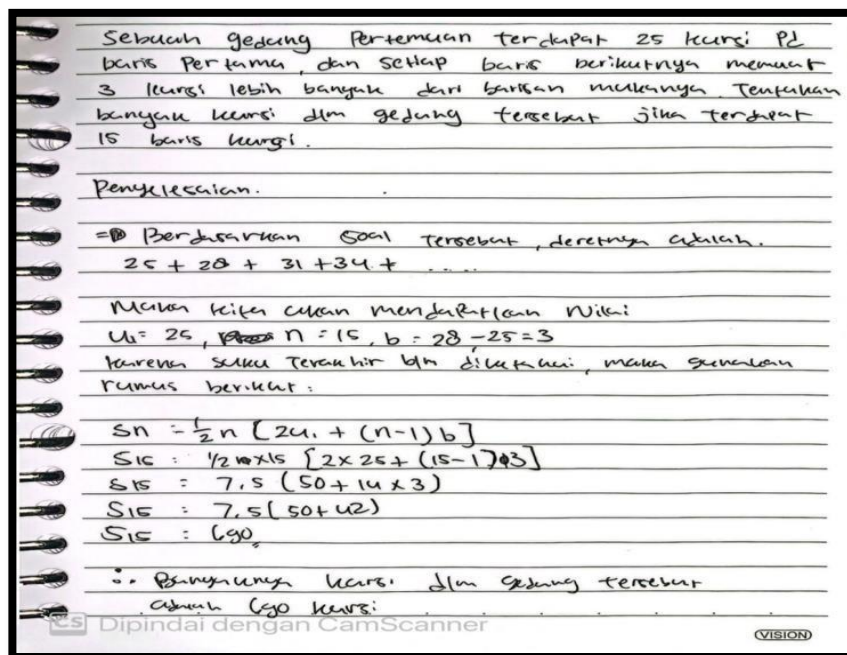 Sebuah gedung Pertemuan terdapat 25 kursi Pd
baris Pertama, dan setiap baris berikutnya memuat
3 kursi lebih banyak dari barisan mukanya. Tentukan
banyak kursi dlm gedung tersebut jika terdapat
15 baris kursi.
Penyelesaian.
=> Berdasarkan Soal tersebut, deretnya adalah.
25 + 28 + 31 + 34 + ....
Maka kita akan mendapatkan Nilai
U1 = 25, n = 15, b = 28 - 25 = 3
karena suku Terakhir blm diketahui, maka gunakan
rumus berikut :
Sn = 1/2 n [2U1 + (n-1) b]
S15 : 1/2 x 15 [2 x 25 + (15-1) 3]
S15 : 7.5 (50 + 14 x 3)
S15 : 7.5 (50 + 42)
S15 : 690
∴ Banyaknya kursi dlm gedung tersebut
adalah 690 kursi
CS Dipindai dengan CamScanner
VISION